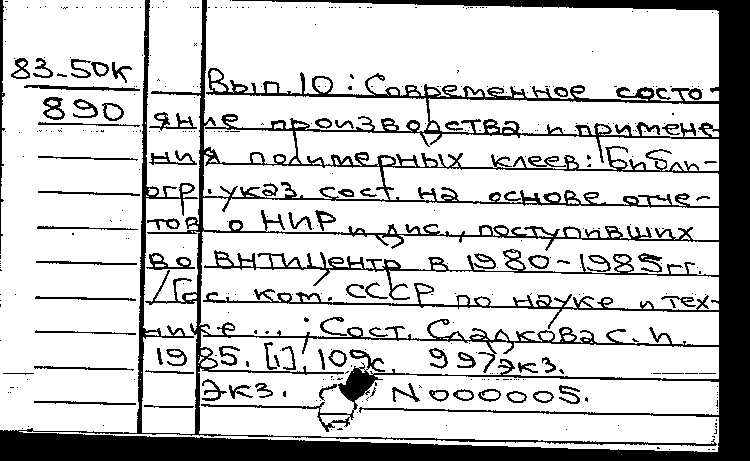 83-50к
Вып. 10 : Современное состо-
890
яние производства и примене-
ния полимерных клеев: Библи-
огр. указ. сост. на основе отче-
тов о НИР и дис., поступивших
во ВНТИЦентр в 1980-1985гг.
/Гос. ком. СССР по науке и тех-
нике... ; Сост. Сладкова С. И.
1985. [1], 109с. 997экз.
Экз. N 000005.